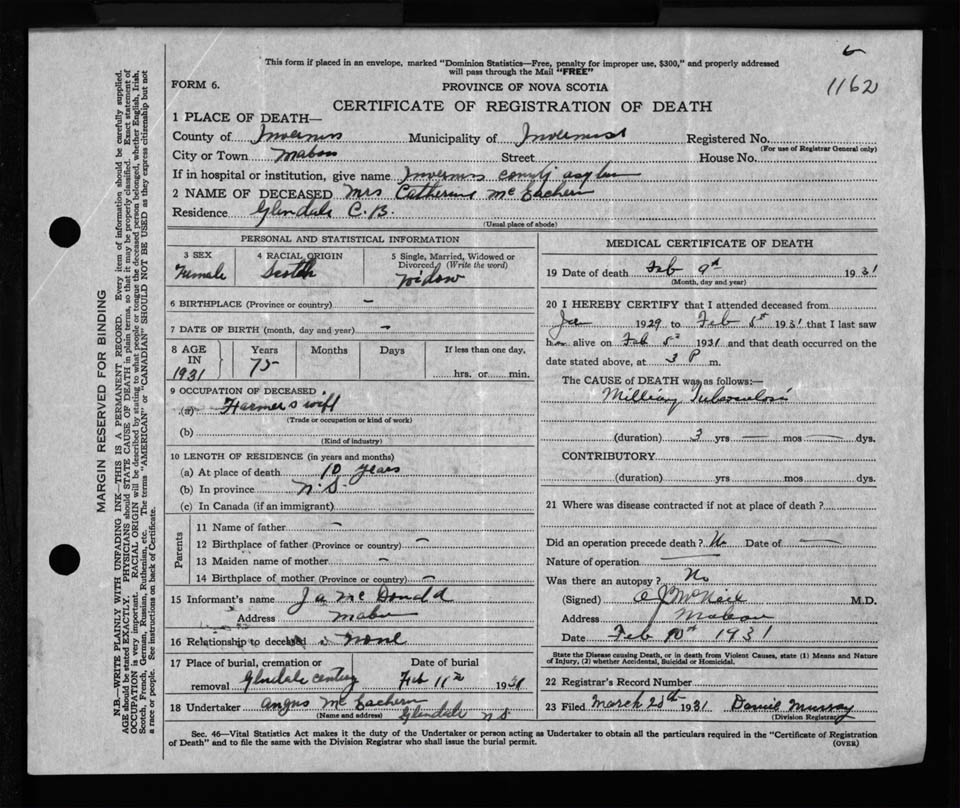 This form if placed in an envelope, marked "Dominion Statistics—Free, penalty for improper use, $300," and properly addressed
will pass through the Mail "FREE"
6
1162
FORM 6.
PROVINCE OF NOVA SCOTIA
CERTIFICATE OF REGISTRATION OF DEATH
1 PLACE OF DEATH—
County of Inverness Municipality of Inverness Registered No.
(For use of Registrar General only)
City or Town Mabou Street House No.
If in hospital or institution, give name Inverness County asylum
2 NAME OF DECEASED Mrs Catherine McEachern
Residence Glendale C.B.
(Usual place of abode)
PERSONAL AND STATISTICAL INFORMATION
3 SEX
Female
4 RACIAL ORIGIN
Scotch
5 Single, Married, Widowed or
Divorced (Write the word)
Widow
6 BIRTHPLACE (Province or country) —
7 DATE OF BIRTH (month, day and year) —
8 AGE
IN
1931
Years
75
Months
Days
If less than one day,
hrs. or min.
9 OCCUPATION OF DECEASED
(a) Farmers wife
(Trade or occupation or kind of work)
(b)
(Kind of industry)
10 LENGTH OF RESIDENCE (in years and months)
(a) At place of death 10 years
(b) In province N.S.
(c) In Canada (if an immigrant)
Parents
11 Name of father —
12 Birthplace of father (Province or country) —
13 Maiden name of mother —
14 Birthplace of mother (Province or country) —
15 Informant's name McDonald
Address Mabou
16 Relationship to deceased None
17 Place of burial, cremation or
removal Glendale
Date of burial
Feb 11th 1931
18 Undertaker Angus McEachern
(Name and address) Glendale N.S.
MEDICAL CERTIFICATE OF DEATH
19 Date of death Feb 9th 1931
(Month, day and year)
20 I HEREBY CERTIFY that I attended deceased from
Jan 1929 to Feb 8th 1931 that I last saw
h alive on Feb 1931 and that death occurred on the
date stated above, at 3 P m.
The CAUSE of DEATH was as follows:—
Milliary Tuberculosis
(duration) 3 yrs — mos — dys.
CONTRIBUTORY
(duration) yrs mos dys.
21 Where was disease contracted if not at place of death?
Did an operation precede death? No Date of —
Nature of operation —
Was there an autopsy? No
(Signed) McNeil M.D.
Address Mabou
Date Feb 10th 1931
State the Disease causing Death, or in death from Violent Causes, state (1) Means and Nature
of Injury, (2) whether Accidental, Suicidal or Homicidal.
22 Registrar's Record Number
23 Filed March 1931 Murray
(Division Registrar)
Sec. 46—Vital Statistics Act makes it the duty of the Undertaker or person acting as Undertaker to obtain all the particulars required in the "Certificate of Registration
of Death" and to file the same with the Division Registrar who shall issue the burial permit.
(OVER)
MARGIN RESERVED FOR BINDING
N.B.—WRITE PLAINLY WITH UNFADING INK—THIS IS A PERMANENT RECORD. Every item of information should be carefully supplied.
AGE should be stated EXACTLY. PHYSICIANS should STATE CAUSE OF DEATH in plain terms, so that it may be properly classified. Exact statement of
OCCUPATION is very important. RACIAL ORIGIN will be described by stating to what people or tongue the deceased person belonged, whether English, Irish,
Scotch, French, German, Russian, Ruthenian, etc. The terms "AMERICAN" or "CANADIAN" SHOULD NOT BE USED as they express citizenship but not
a race or people. See instructions on back of Certificate.